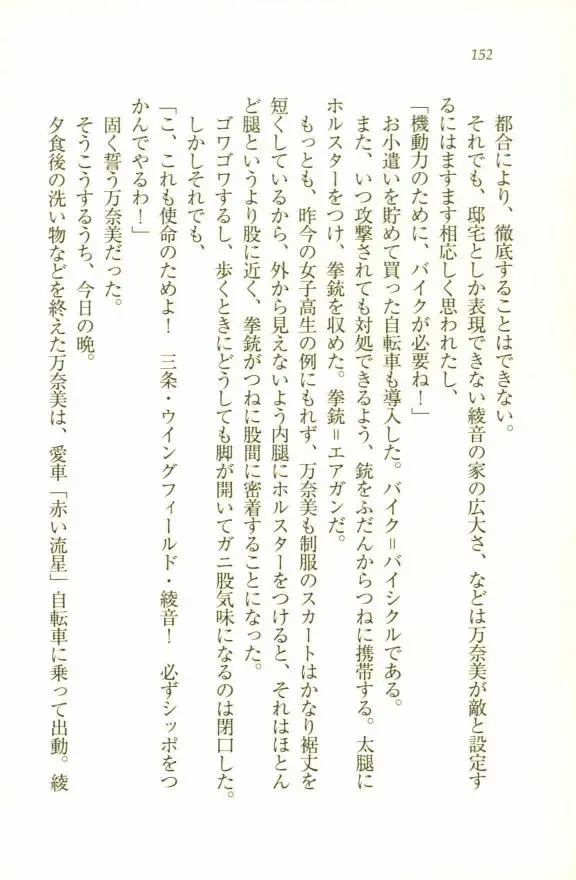 152
都合により、徹底することはできない。
それでも、邸宅としか表現できない綾音の家の広大さ、などは万奈美が敵と設定す
るにはますます相応しく思われたし、
「機動力のために、バイクが必要ね！」
お小遣いを貯めて買った自転車も導入した。バイク＝バイシクルである。
また、いつ攻撃されても対処できるよう、銃をふだんからつねに携帯する。太腿に
ホルスターをつけ、拳銃を収めた。拳銃＝エアガンだ。
もっとも、昨今の女子高生の例にもれず、万奈美も制服のスカートはかなり裾丈を
短くしているから、外から見えないよう内腿にホルスターをつけると、それはほとん
ど腿というより股に近く、拳銃がつねに股間に密着することになった。
ゴワゴワするし、歩くときにどうしても脚が開いてガニ股気味になるのは閉口した。
しかしそれでも、
「こ、これも使命のためよ！　三条・ウイングフィールド・綾音！　必ずシッポをつ
かんでやるわ！」
固く誓う万奈美だった。
そうこうするうち、今日の晩。
夕食後の洗い物などを終えた万奈美は、愛車「赤い流星」自転車に乗って出動。綾